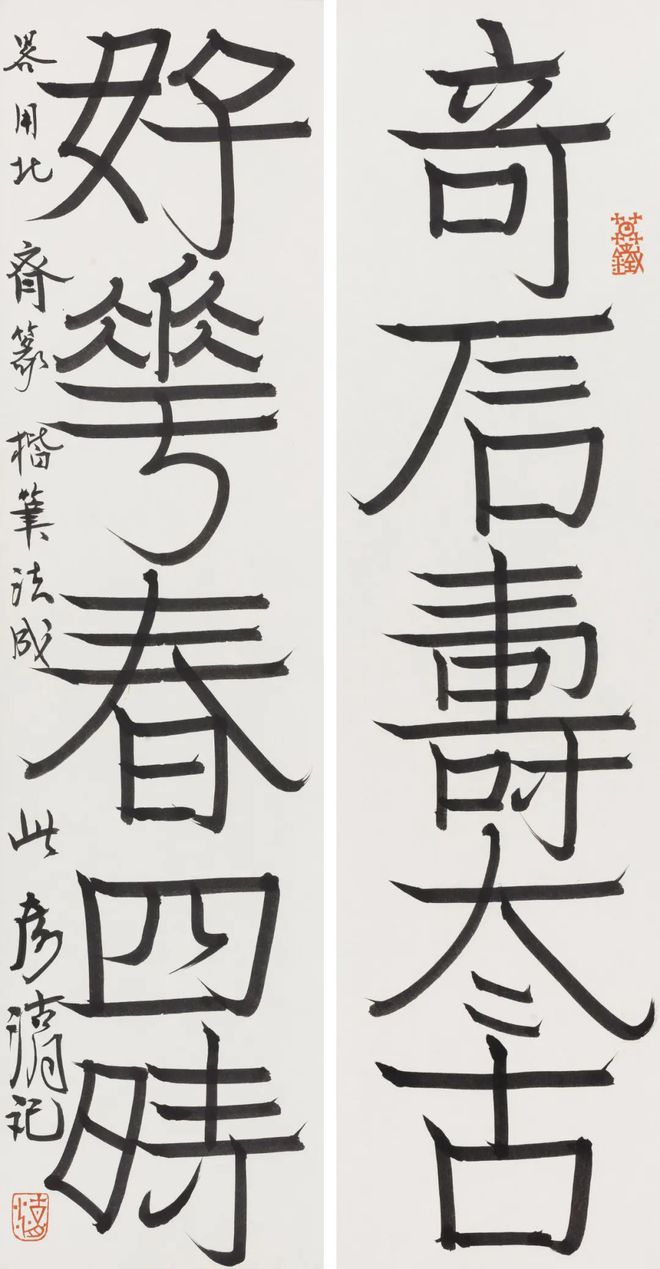 奇石壽太古
好華春四時
畧用北齊篆楷筆法成此彥湖記